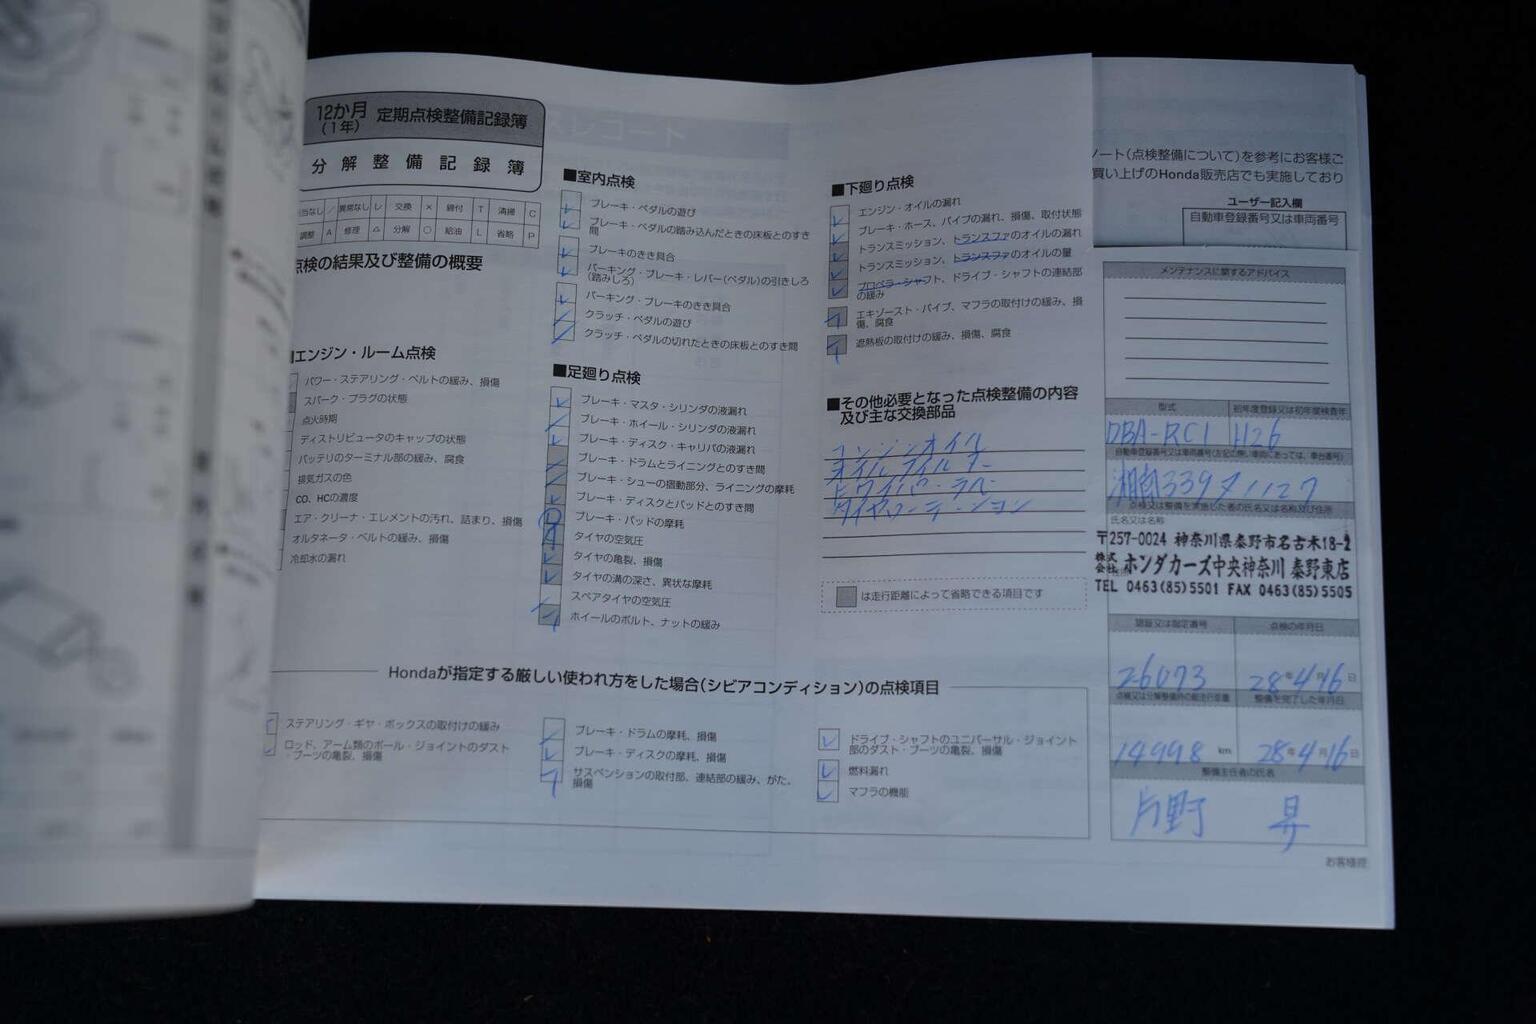 12か月
(1年)
定期点検整備記録簿
分解整備記録簿
異常なし レ 交換 × 締付 T 清掃 C
調整 A 修理 △ 分解 ○ 給油 L 省略 P
点検の結果及び整備の概要
エンジン・ルーム点検
パワー・ステアリング・ベルトの緩み、損傷
スパーク・プラグの状態
点火時期
ディストリビュータのキャップの状態
バッテリのターミナル部の緩み、腐食
排気ガスの色
CO、HCの濃度
エア・クリーナ・エレメントの汚れ、詰まり、損傷
オルタネータ・ベルトの緩み、損傷
冷却水の漏れ
■室内点検
ブレーキ・ペダルの遊び
ブレーキ・ペダルの踏み込んだときの床板とのすき間
ブレーキのきき具合
パーキング・ブレーキ・レバー(ペダル)の引きしろ(踏みしろ)
パーキング・ブレーキのきき具合
クラッチ・ペダルの遊び
クラッチ・ペダルの切れたときの床板とのすき間
■足廻り点検
ブレーキ・マスタ・シリンダの液漏れ
ブレーキ・ホイール・シリンダの液漏れ
ブレーキ・ディスク・キャリパの液漏れ
ブレーキ・ドラムとライニングとのすき間
ブレーキ・シューの摺動部分、ライニングの摩耗
ブレーキ・ディスクとパッドとのすき間
ブレーキ・パッドの摩耗
タイヤの空気圧
タイヤの亀裂、損傷
タイヤの溝の深さ、異状な摩耗
スペアタイヤの空気圧
ホイールのボルト、ナットの緩み
■下廻り点検
エンジン・オイルの漏れ
ブレーキ・ホース、パイプの漏れ、損傷、取付状態
トランスミッション、トランスファのオイルの漏れ
トランスミッション、トランスファのオイルの量
プロペラ・シャフト、ドライブ・シャフトの連結部の緩み
エキゾースト・パイプ、マフラの取付けの緩み、損傷、腐食
遮熱板の取付けの緩み、損傷、腐食
■その他必要となった点検整備の内容
及び主な交換部品
エンジンオイル
オイルフィルター
タイヤローテーション
は走行距離によって省略できる項目です
Hondaが指定する厳しい使われ方をした場合(シビアコンディション)の点検項目
ステアリング・ギヤ・ボックスの取付けの緩み
ロッド、アーム類のボール・ジョイントのダスト・ブーツの亀裂、損傷
ブレーキ・ドラムの摩耗、損傷
ブレーキ・ディスクの摩耗、損傷
サスペンションの取付部、連結部の緩み、がた、損傷
ドライブ・シャフトのユニバーサル・ジョイント部のダスト・ブーツの亀裂、損傷
燃料漏れ
マフラの機能
ノート(点検整備について)を参考にお客様ご
買い上げのHonda販売店でも実施しており
ユーザー記入欄
自動車登録番号又は車両番号
メンテナンスに関するアドバイス
型式 初年度登録又は初年度検査年
DBA-RC1 H26
湘南339 1127
点検又は整備を実施した者の氏名又は名称及び住所
氏名又は名称
〒257-0024 神奈川県秦野市名古木18-2
株式会社 ホンダカーズ中央神奈川 秦野東店
TEL 0463(85)5501 FAX 0463(85)5505
認証又は指定番号 点検の年月日
28年4月16日
整備を完了した年月日
14998 km 28年4月16日
整備主任者の氏名
片野 昇
お客様控